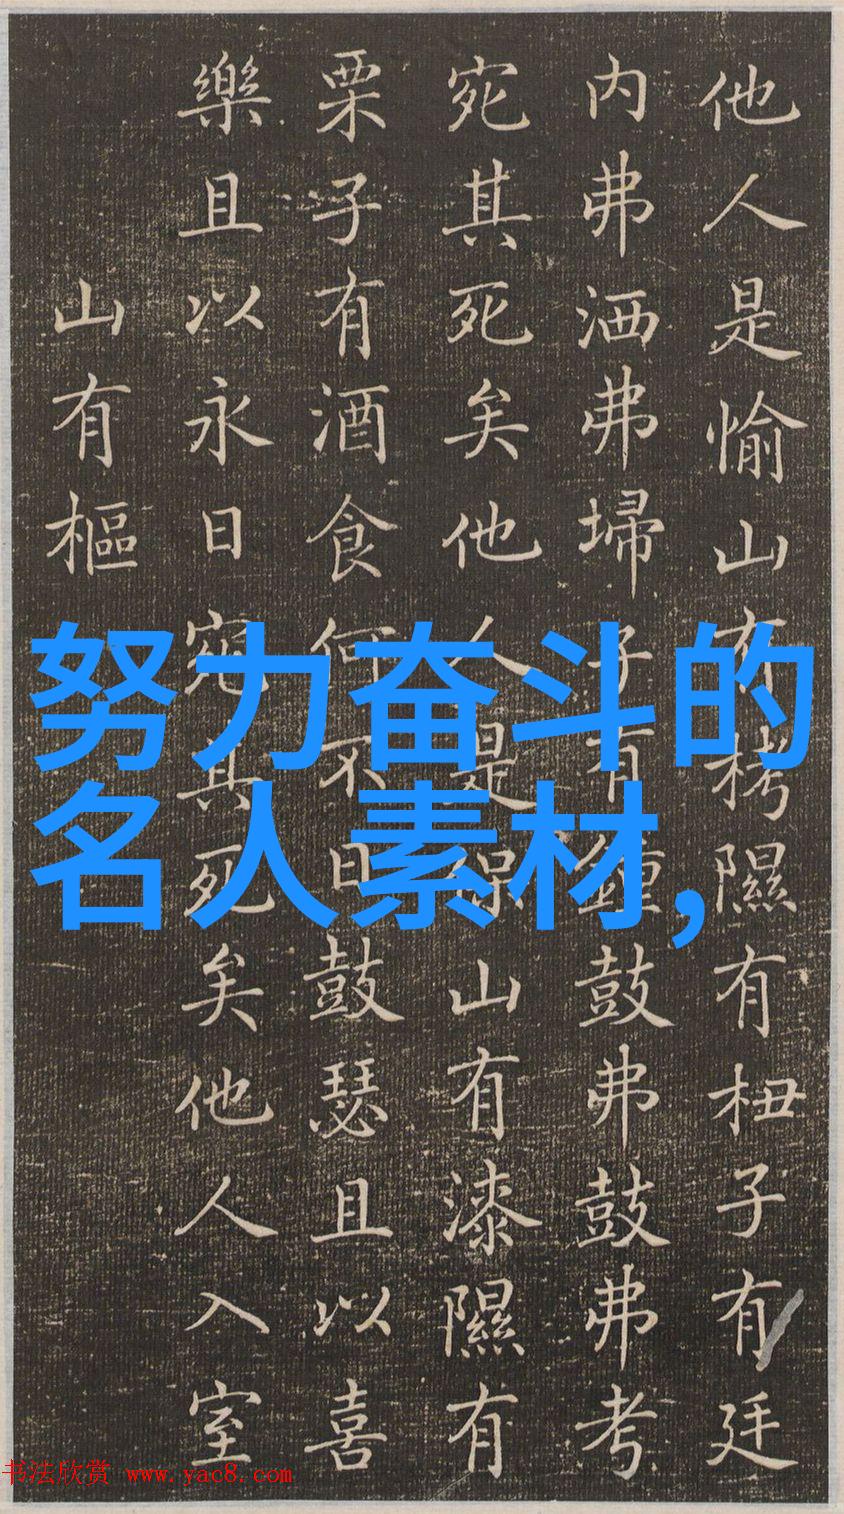 他人是愉山有栲隰有杻子有廷
内弗洒弗埽子有鍾鼓弗鼓弗考
宛其死矣他人是保山有漆隰有
栗子有酒食何不日鼓瑟且以喜
樂且以永日宛其死矣他人入室
山有樞
努力奋斗的
名人素材,
书法欣赏 www.yac8.com